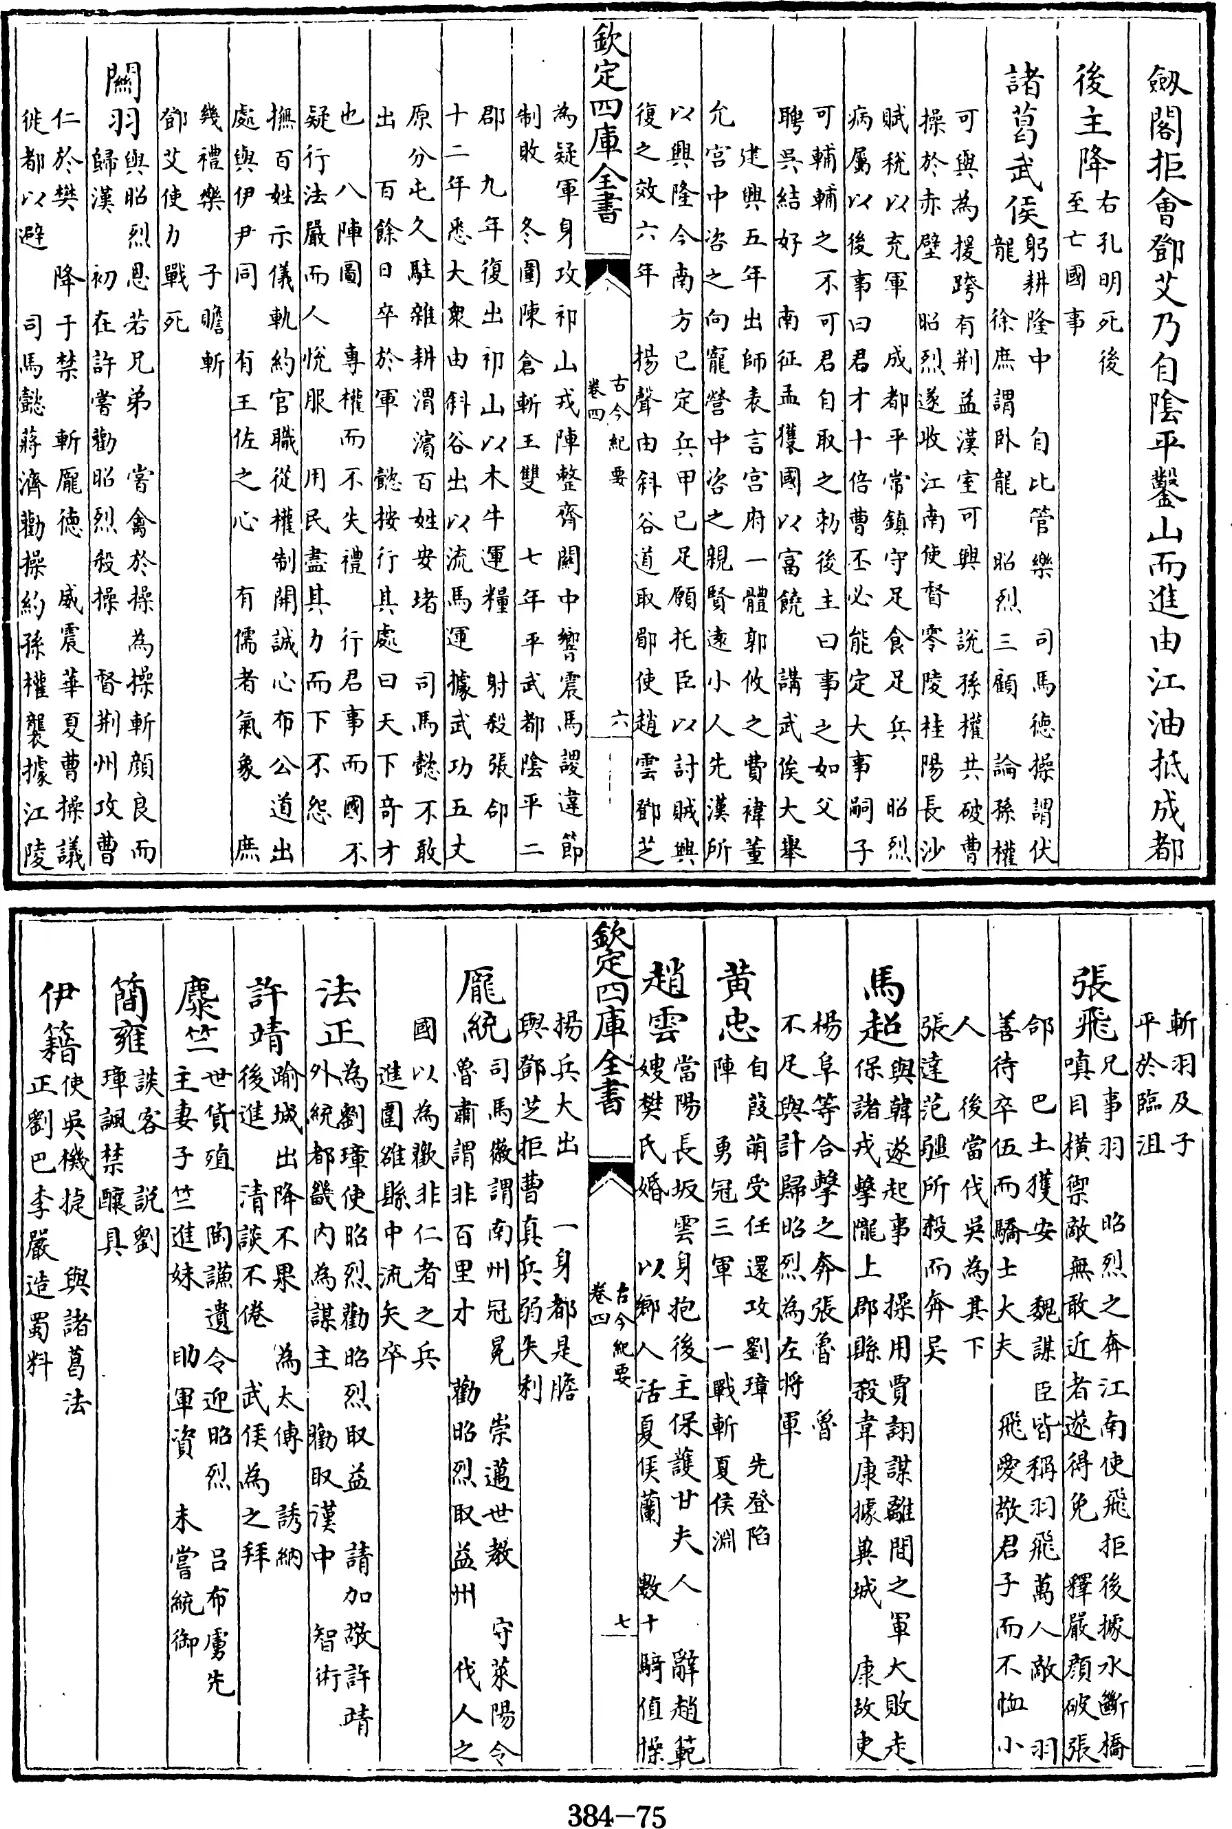 劔閣拒會鄧艾乃自陰平鑿山而進由江油抵成都
後主降右孔明死後
至亡國事
諸葛武侯躬耕隆中　自比管樂　司馬德操謂伏
龍　徐庶謂卧龍　昭烈三顧　論孫權
可與為援跨有荆益漢室可興　說孫權共破曹
操於赤壁　昭烈遂收江南使督零陵桂陽長沙
賦稅以充軍　成都平常鎮守足食足兵　昭烈
病屬以後事曰君才十倍曹丕必能定大事嗣子
可輔輔之不可君自取之勑後主曰事之如父
聘吳結好　南征孟獲國以富饒　講武俟大舉
建興五年出師表言宮府一體郭攸之費禕董
允宮中咨之向寵營中咨之親賢遠小人先漢所
以興隆今南方已定兵甲已足願托臣以討賊興
復之效六年　揚聲由斜谷道取郿使趙雲鄧芝
欽定四庫全書
古今紀要
卷四
六
為疑軍身攻祁山戎陣整齊關中響震馬謖違節
制敗　冬圍陳倉斬王雙　七年平武都陰平二
郡　九年復出祁山以木牛運糧　射殺張郃
十二年悉大衆由斜谷出以流馬運據武功五丈
原分屯久駐雜耕渭濱百姓安堵　司馬懿不敢
出　百餘日卒於軍　懿按行其處曰天下奇才
也　八陣圖　專權而不失禮　行君事而國不
疑行法嚴而人悅服　用民盡其力而下不怨
撫百姓示儀軌約官職從權制開誠心布公道出
處與伊尹同　有王佐之心　有儒者氣象　庶
幾禮樂　子瞻斬
鄧艾使力戰死
關羽與昭烈恩若兄弟　嘗禽於操為操斬顔良而
歸漢　初在許嘗勸昭烈殺操　督荆州攻曹
仁於樊　降于禁　斬龐德　威震華夏曹操議
徙都以避　司馬懿蔣濟勸操約孫權襲據江陵
斬羽及子
平於臨沮
張飛兄事羽　昭烈之奔江南使飛拒後據水斷橋
嗔目橫禦敵無敢近者遂得免　釋嚴顔破張
郃　巴土獲安　魏謀臣皆稱羽飛萬人敵　羽
善待卒伍而驕士大夫　飛愛敬君子而不恤小
人　後當伐吳為其下
張達范彊所殺而奔吳
馬超與韓遂起事　操用賈詡謀離間之軍大敗走
保諸戎擊隴上郡縣殺韋康據冀城　康故吏
楊阜等合擊之奔張魯　魯
不足與計歸昭烈為左將軍
黄忠自葭萌受任還攻劉璋　先登陷
陣　勇冠三軍　一戰斬夏侯淵
趙雲當陽長坂雲身抱後主保護甘夫人　辭趙範
嫂樊氏婚　以鄉人活夏侯蘭　數十騎值操
欽定四庫全書
古今紀要
卷四
七
揚兵大出　一身都是膽
與鄧芝拒曹真兵弱失利
龐統司馬徽謂南州冠冕　崇邁世教　守萊陽令
魯肅謂非百里才　勸昭烈取益州　伐人之
國以為歡非仁者之兵
進圍雒縣中流矢卒
法正為劉璋使昭烈勸昭烈取益　請加敬許靖
外統都畿内為謀主　勸取漢中　智術
許靖踰城出降不果　為太傅　誘納
後進　清談不倦　武侯為之拜
麋竺世貨殖　陶謙遺令迎昭烈　呂布虜先
主妻子竺進妹　助軍資　未嘗統御
簡雍談客　說劉
璋諷禁釀具
伊籍使吳機捷　與諸葛法
正劉巴李嚴造蜀科
384-75